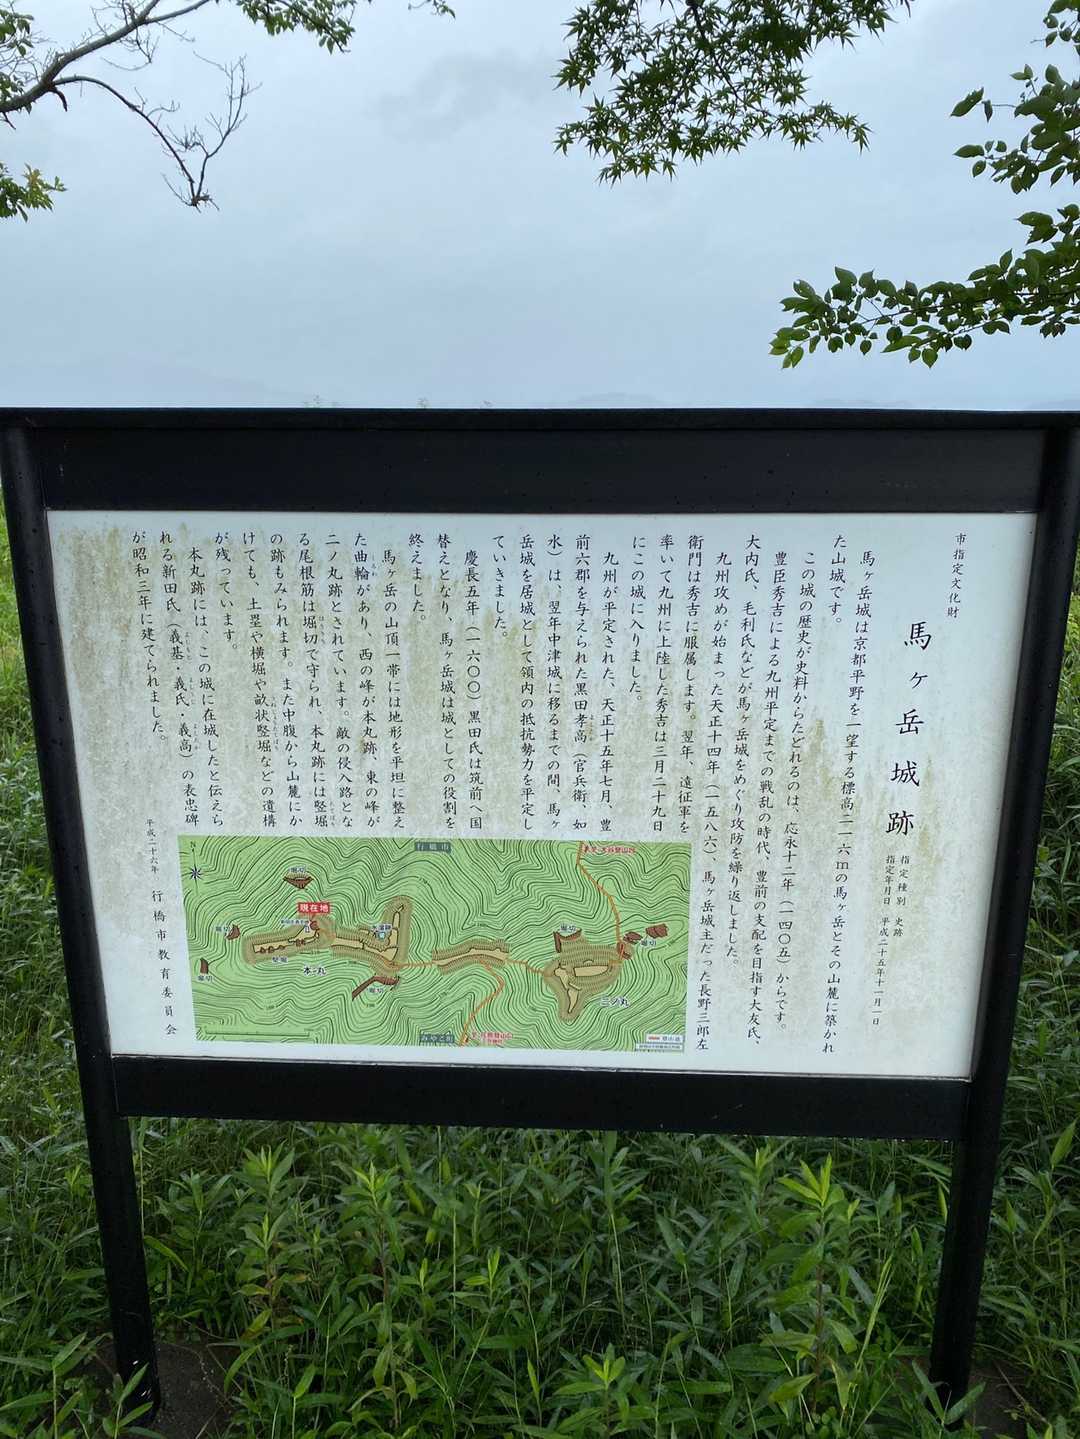 市指定文化財
馬ヶ岳城跡
指定種別 史跡
指定年月日 平成二十五年十一月一日
馬ヶ岳城は京都平野を一望する標高二一六mの馬ヶ岳とその山麓に築かれ
た山城です。
この城の歴史が史料からたどれるのは、応永十二年（一四〇五）からです。
豊臣秀吉による九州平定までの戦乱の時代、豊前の支配を目指す大友氏、
大内氏、毛利氏などが馬ヶ岳城をめぐり攻防を繰り返しました。
九州攻めが始まった天正十四年（一五八六）、馬ヶ岳城主だった長野三郎左
衛門は秀吉に服属します。翌年、遠征軍を
率いて九州に上陸した秀吉は三月二十九日
にこの城に入りました。
九州が平定された、天正十五年七月、豊
前六郡を与えられた黒田孝高（官兵衛、如
水）は、翌年中津城に移るまでの間、馬ヶ
岳城を居城として領内の抵抗勢力を平定し
ていきました。
慶長五年（一六〇〇）黒田氏は筑前へ国
替えとなり、馬ヶ岳城は城としての役割を
終えました。
馬ヶ岳の山頂一帯には地形を平坦に整え
た曲輪があり、西の峰が本丸跡、東の峰が
二ノ丸跡とされています。敵の侵入路とな
る尾根筋は堀切で守られ、本丸跡には竪堀
の跡もみられます。また中腹から山麓にか
けても、土塁や横堀や畝状竪堀などの遺構
が残っています。
本丸跡には、この城に在城したと伝えら
れる新田氏（義基・義氏・義高）の表忠碑
が昭和三年に建てられました。
平成二十六年 行橋市教育委員会
行橋市
N
堀切
現在地
堀切
堀切
竪堀
本丸
水溜跡
堀切
堀切
堀切
二ノ丸
みやこ町
登山道